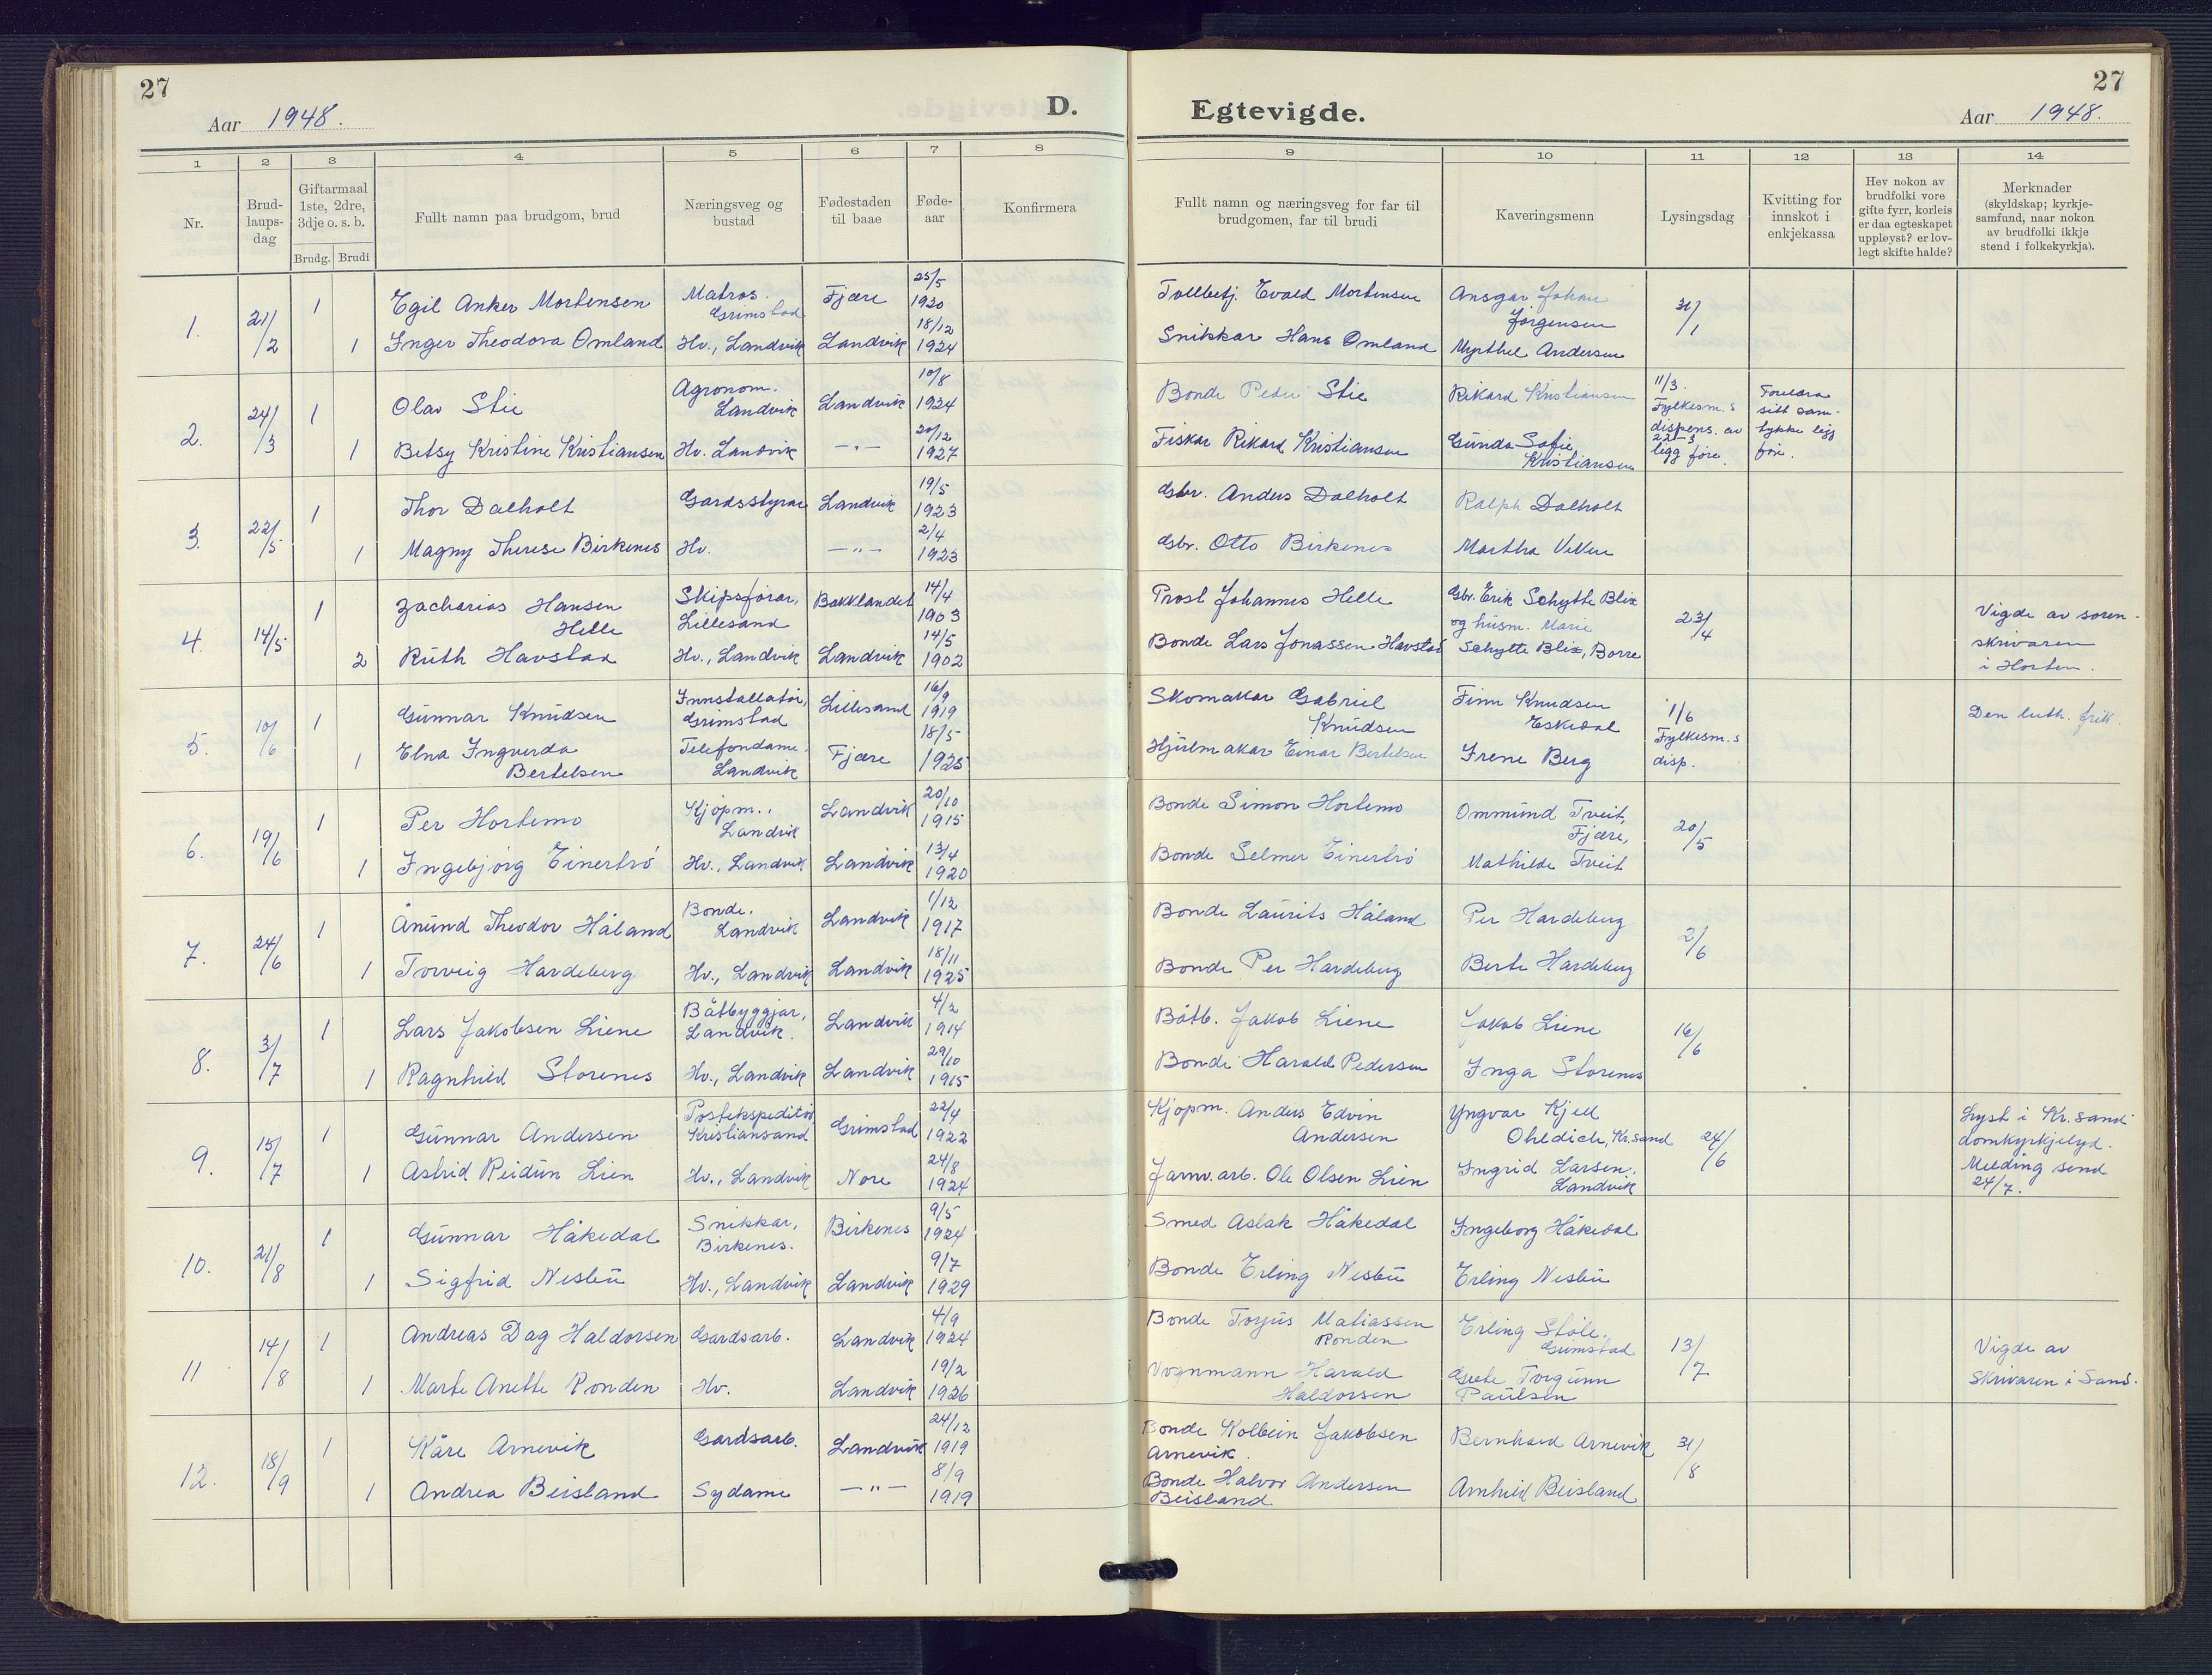 27
Aar 1948.
D.
1 2 3 4 5 6 7 8
Nr.
Brud-
laups-
dag
Giftarmaal
1ste, 2dre,
3dje o. s. b.
Brudg. Brudi
Fullt namn paa brudgom, brud
Næringsveg og
bustad
Fødestaden
til baae
Føde-
aar
Konfirmera
1. 21/2
1 Egil Anker Mortensen Matros. Grimstad Fjære 25/5 1920
1 Inger Theodora Omland Hv., Landvik Landvik 18/12 1924
2. 24/3
1 Olav Stie Agronom. Landvik Landvik 10/8 1924
1 Betsy Kristine Kristiansen Hv. Landvik —"— 20/12 1927
3. 22/5
1 Thor Dalholt Gardsstyrar Landvik 19/5 1923
1 Magny Therese Birkenes Hv. —"— 2/4 1923
4. 14/5
1 Zacharias Hansen Helle Skipsförar, Lillesand Bakklandet 14/4 1903
2 Ruth Havstad Hv., Landvik Landvik 14/5 1902
5. 10/6
1 Gunnar Knudsen Innstallatör, Grimstad Lillesand 16/9 1919
1 Elna Ingverda Bertelsen Telefondame. Landvik Fjære 18/5 1925
6. 19/6
1 Per Hortemo Kjöpm., Landvik Landvik 20/10 1915
1 Ingebjörg Einertrö Hv., Landvik Landvik 13/4 1920
7. 24/6
1 Ånund Theodor Håland Bonde. Landvik Landvik 1/12 1917
1 Torveig Hardeberg Hv., Landvik Landvik 18/11 1925
8. 3/7
1 Lars Jakobsen Liene Båtbyggjar, Landvik. Landvik 4/2 1914
1 Ragnhild Storenes Hv., Landvik Landvik 29/10 1915
9. 15/7
1 Gunnar Andersen Postekspeditör Kristiansand Grimstad 22/4 1922
1 Astrid Reidun Lien Hv., Landvik Nore 24/8 1924
10. 21/8
1 Gunnar Håkedal Snikkar, Birkenes. Birkenes 9/5 1924
1 Sigfrid Nesbu Hv., Landvik Landvik 9/7 1929
11 14/8
1 Andreas Dag Haldorsen Gardsarb. Landvik 4/9 1924
1 Marte Anette Ronden Hv. Landvik 19/2 1926
12. 18/9
1 Kåre Arnevik Gardsarb. Landvik 24/12 1919
1 Andrea Beisland Sydame —"— 8/9 1919
27
Egtevigde.
Aar 1948.
9 10 11 12 13 14
Fullt namn og næringsveg for far til
brudgomen, far til brudi
Kaveringsmenn
Lysingsdag
Kvitting for
innskot i
enkjekassa
Hev nokon av
brudfolki vore
gifte fyrr, korleis
er daa egteskapet
uppløyst? er lov-
legt skifte halde?
Merknader
(skyldskap; kyrkje-
samfund, naar nokon
av brudfolki ikkje
stend i folkekyrkja).
Tollbetj. Evald Mortensen Ansgar Johan Jörgensen 31/1
Snikkar Hans Omland Myrthel Andersen
Bonde Peder Stie Rikard Kristiansen 11/3. Fylkesm.s dispens. av 22-3 ligg före. Foreldra sitt sam- tykke ligg före.
Fiskar Rikard Kristiansen Gunda Sofie Kristiansen
Gbr. Anders Dalholt Ralph Dalholt
Gbr. Otto Birkenes Martha
Prost Johannes Helle Gbr. Erik Schytte Blix og husm. Marie 23/4 Vigde av soren- skrivaren i Horten.
Bonde Lars Jonassen Havstad Schytte Blix, Borre
Skomakar Gabriel Knudsen Finn Knudsen Eskedal 1/6 Fylkesm.s disp. Den luth. frik.
Hjulmakar Einar Bertelsen Irene Berg
Bonde Simon Hortemo Ommund Tveit, Fjære, 20/5
Bonde Selmer Einertrö Mathilde Tveit
Bonde Laurits Håland Per Hardeberg 2/6
Bonde Per Hardeberg Berte Hardeberg
Båtb. Jakob Liene Jakob Liene 16/6
Bonde Harald Pedersen Inga Storenes
Kjöpm. Anders Edvin Andersen Yngvar Kjell Ohldich, Kr.sand 24/6 Lyst i Kr.sand domkyrkjelyd. Melding send 24/7.
Jarnv.arb. Ole Olsen Lien Ingrid Larsen, Landvik
Smed Aslak Håkedal Ingeborg Håkedal
Bonde Erling Nesbu Erling Nesbu
Bonde Torjus Matiassen Ronden Erling Stöle. Grimstad 13/7 Vigde av skrivaren i Sand.
Vognmann Harald Haldorsen Grete Torgunn Paulsen
Bonde Kolbein Jakobsen Arnevik. Bernhard Arnevik 31/8
Bonde Halvor Andersen Beisland Arnhild Beisland